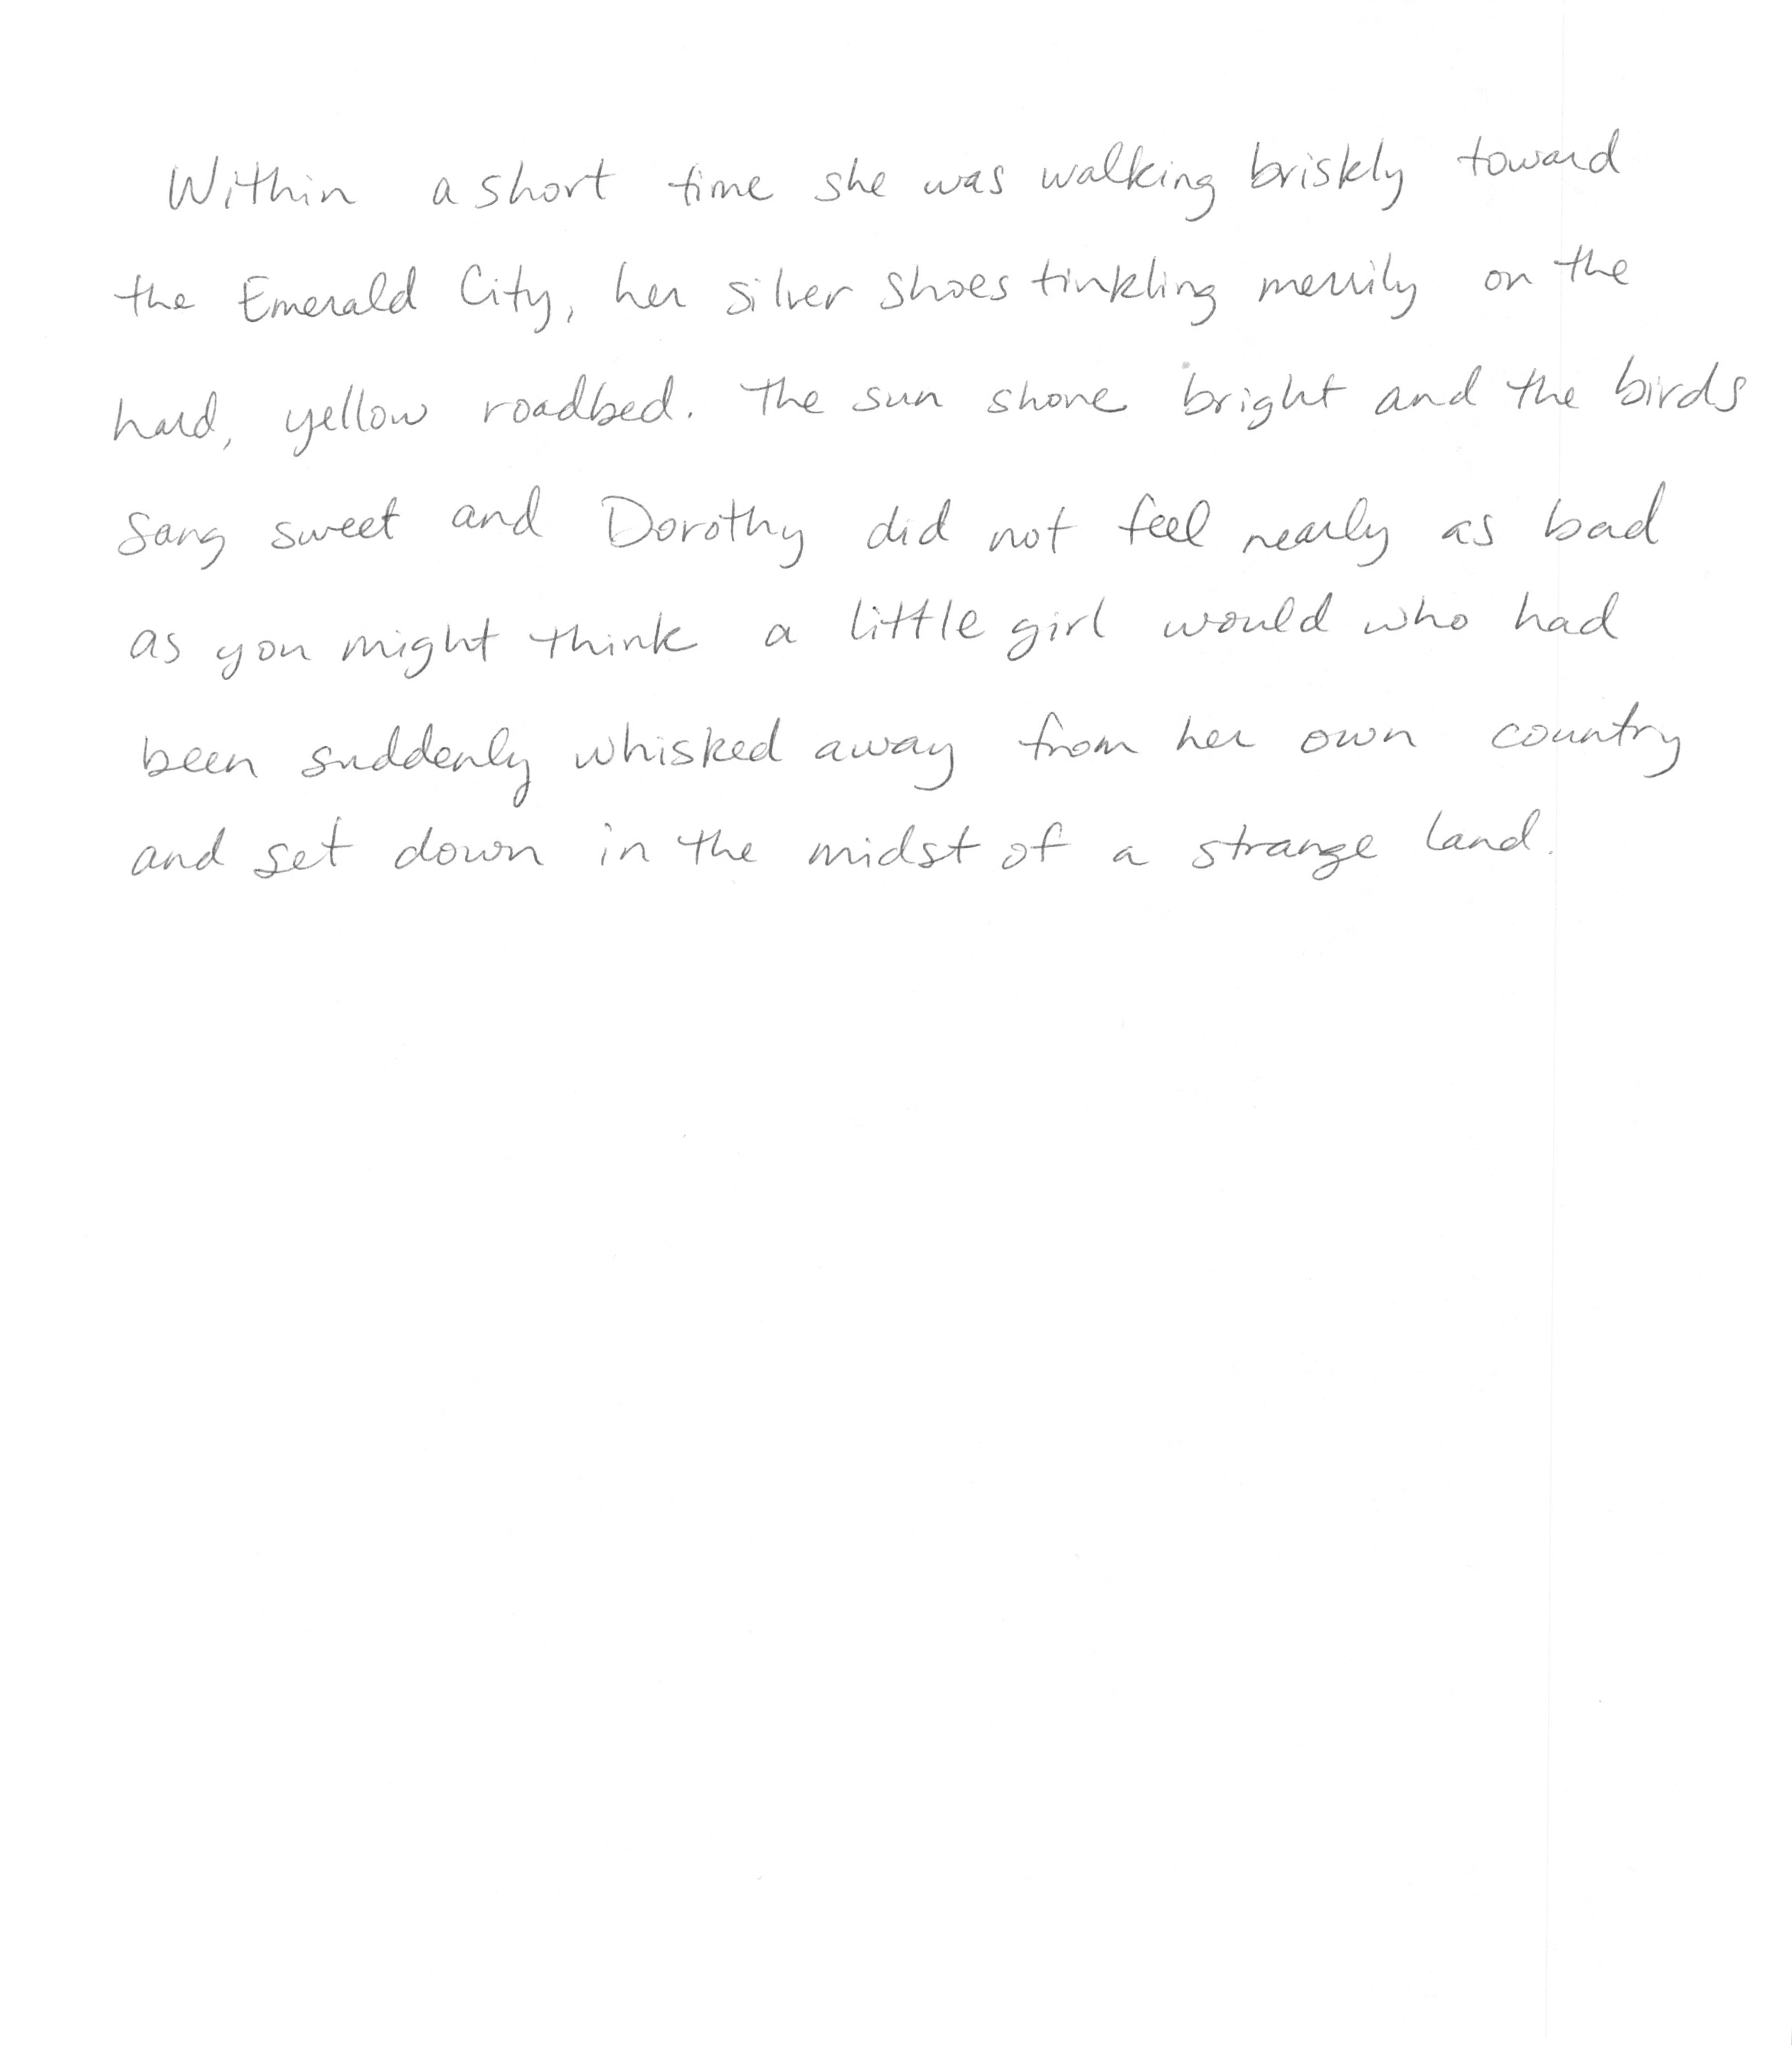 Within a short time she was walking briskly toward
the Emerald City, her silver shoes tinkling merrily on the
hard, yellow roadbed. The sun shone bright and the birds
sang sweet and Dorothy did not feel nearly as bad
as you might think a little girl would who had
been suddenly whisked away from her own country
and set down in the midst of a strange land.